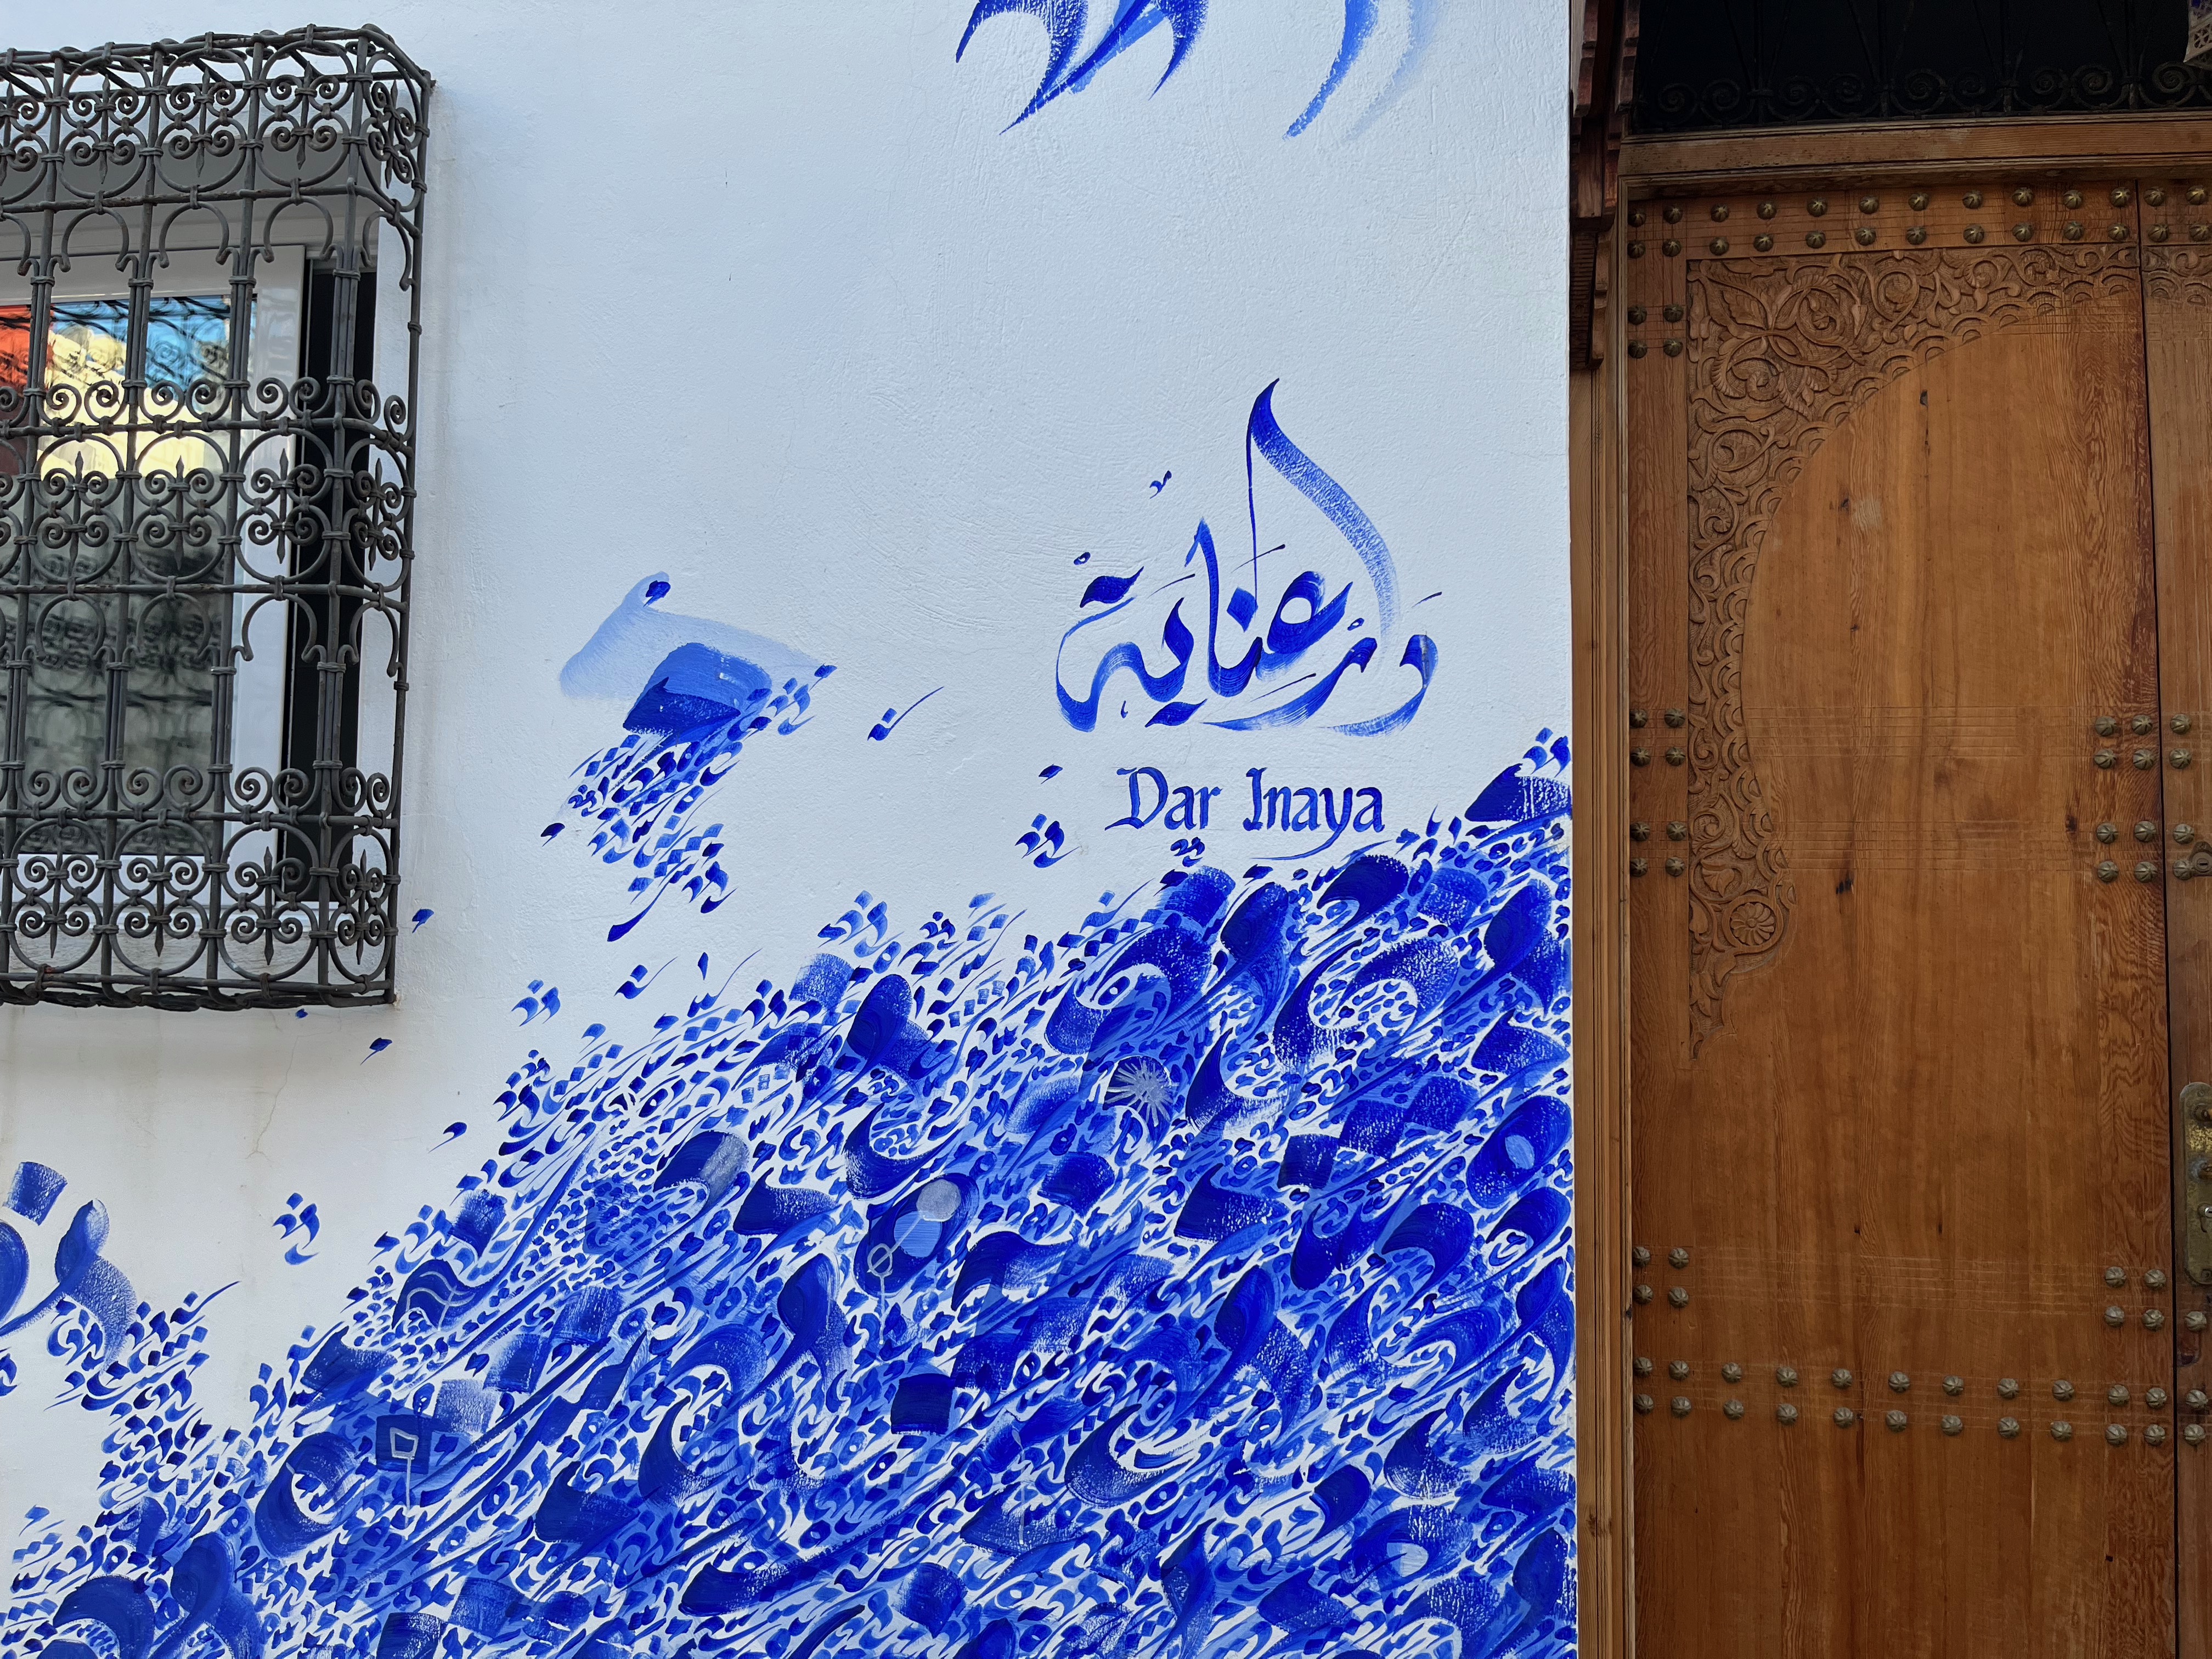 دار عناية
Dar Inaya